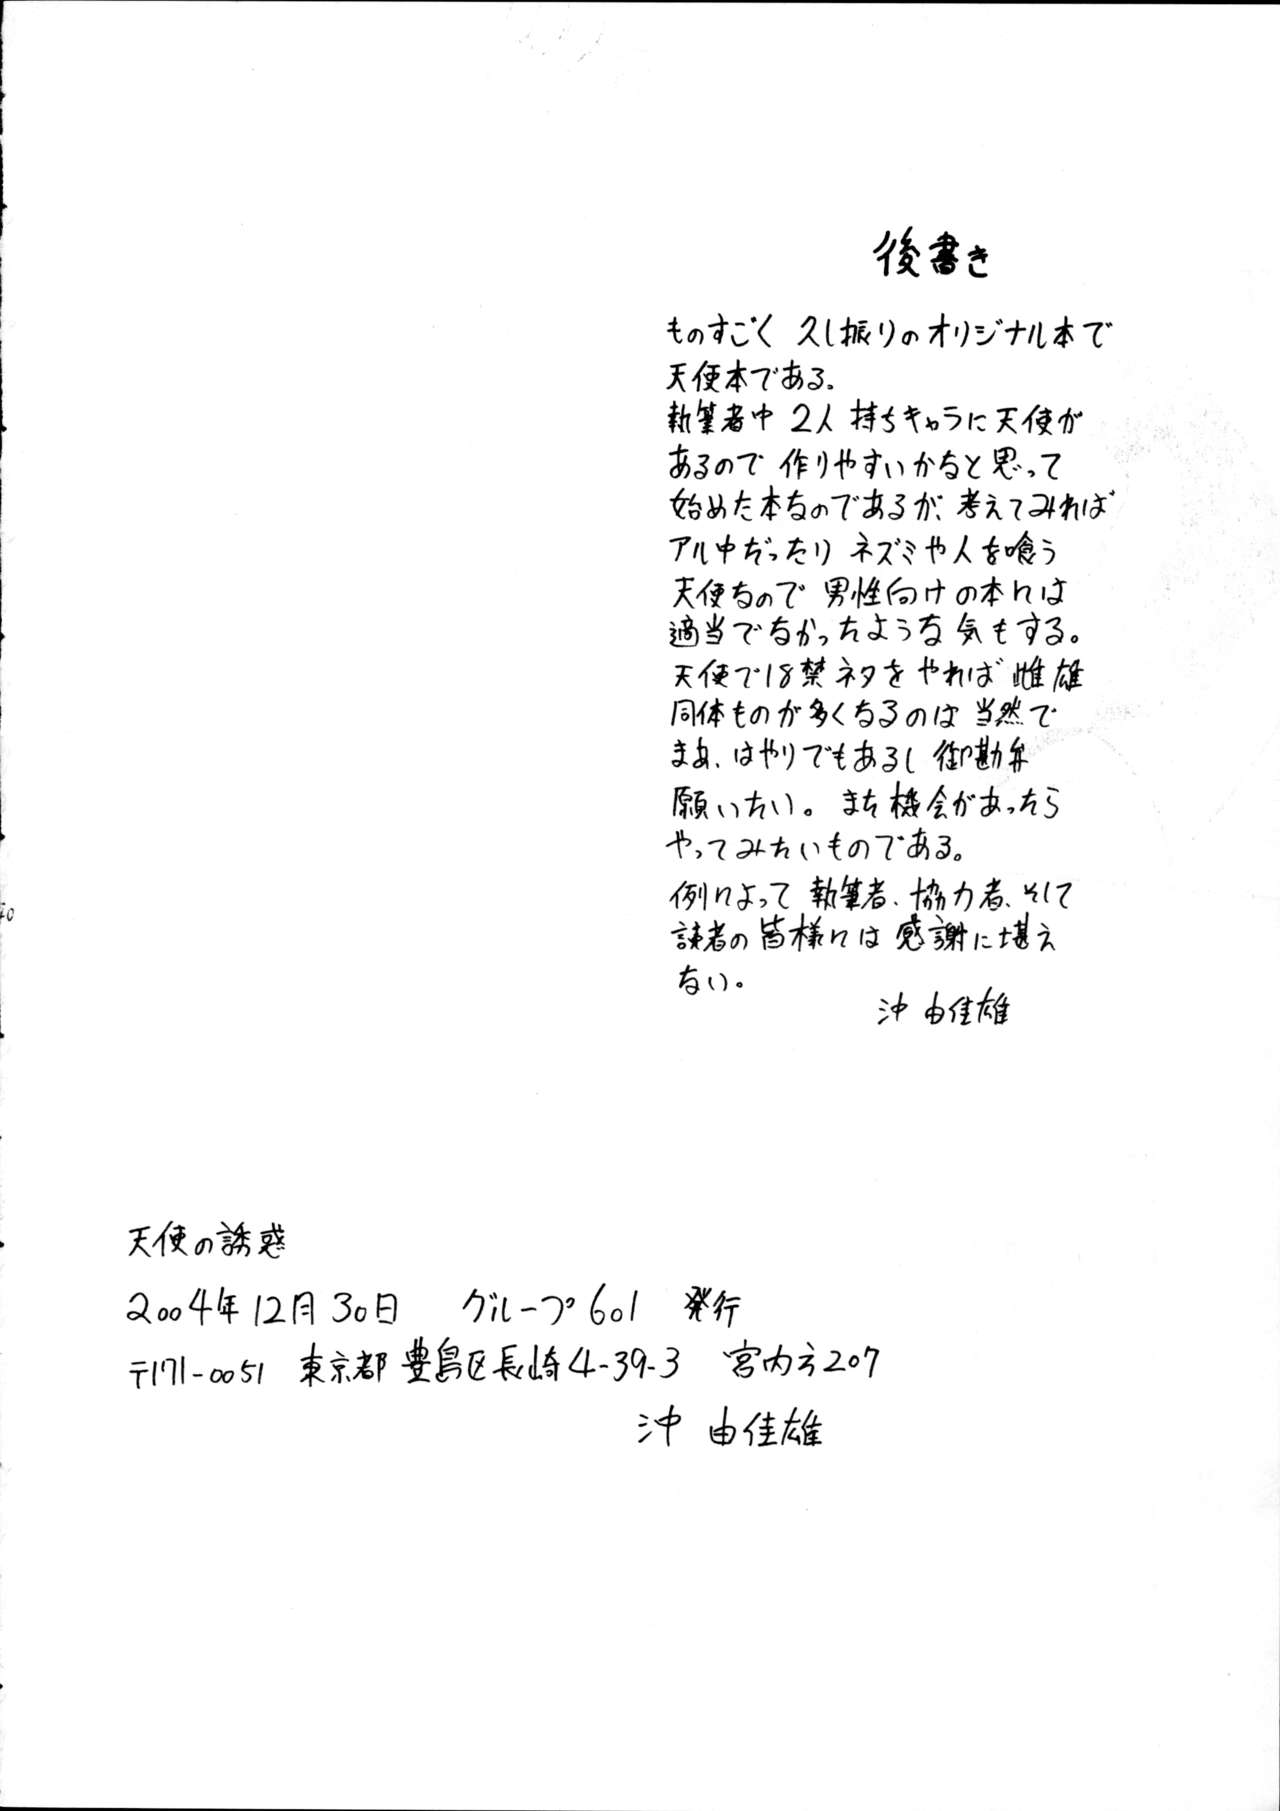 後書き
ものすごく 久し振りのオリジナル本で
天使本である。
執筆者中 2人 持ちキャラに天使が
あるので 作りやすいかなと思って
始めた本なのであるが、考えてみれば
アル中だったり ネズミや人を喰う
天使なので 男性向けの本には
適当でなかったような気もする。
天使で18禁ネタをやれば 雌雄
同体ものが多くなるのは 当然で
まあ、はやりでもあるし 御勘弁
願いたい。また機会があったら
やってみたいものである。
例によって 執筆者、協力者、そして
読者の皆様には 感謝に堪え
ない。
沖 由佳雄
天使の誘惑
2004年12月30日 グループ601 発行
〒171-0051 東京都豊島区長崎4-39-3 宮内方207
沖 由佳雄